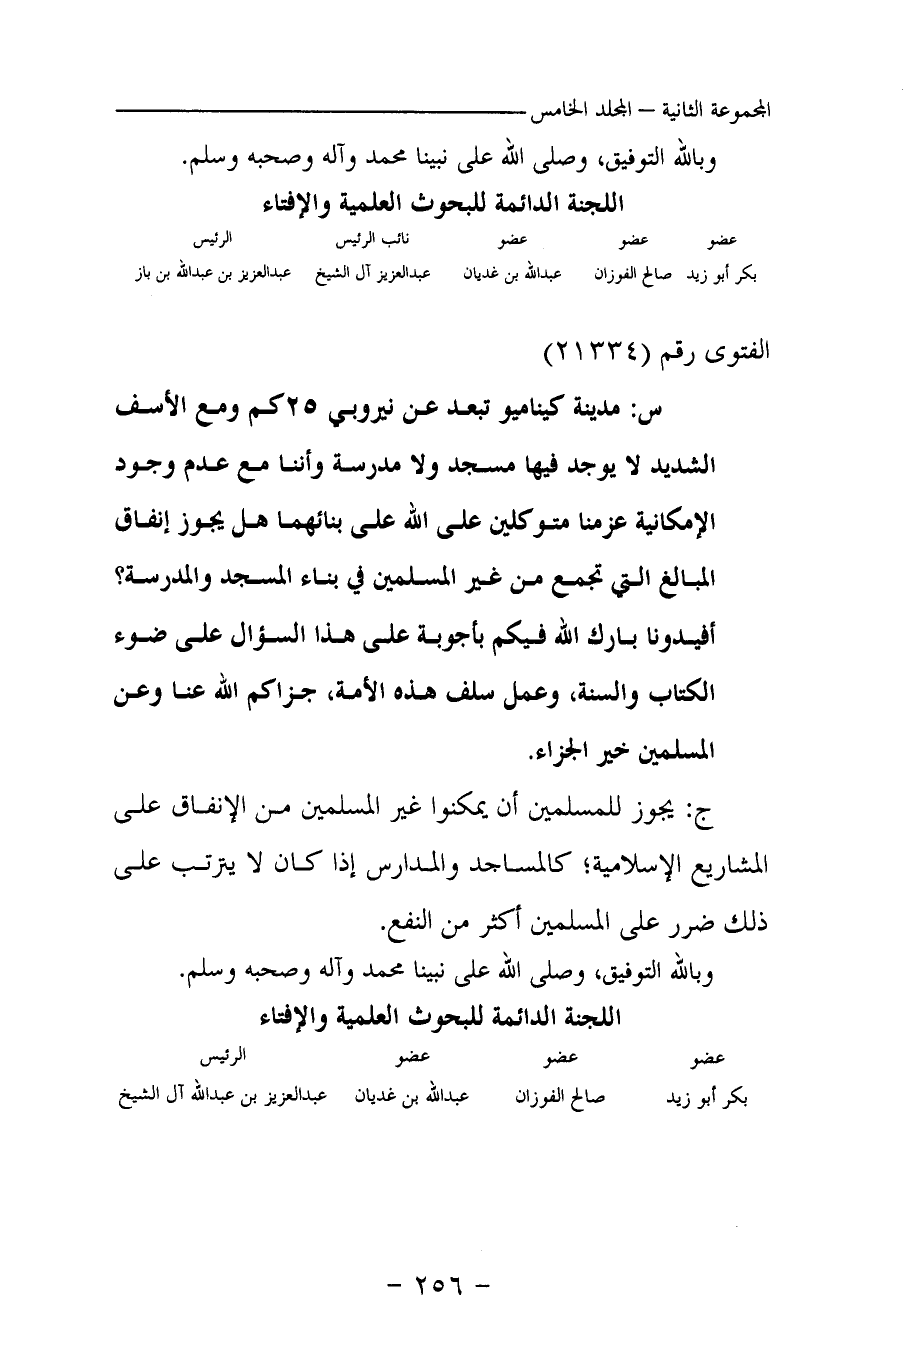 المجموعة الثانية – المجلد الخامس
وبالله التوفيق، وصلى الله على نبينا محمد وآله وصحبه وسلم.
اللجنة الدائمة للبحوث العلمية والإفتاء
عضو عضو عضو نائب الرئيس الرئيس
بكر أبو زيد صالح الفوزان عبدالله بن غديان عبدالعزيز آل الشيخ عبدالعزيز بن عبدالله بن باز
الفتوى رقم (٢١٣٣٤)
س: مدينة كيناميو تبعد عن نيروبي ٢٥كم ومع الأسف
الشديد لا يوجد فيها مسجد ولا مدرسة وأننا مع عدم وجود
الإمكانية عزمنا متوكلين على الله على بنائهما هل يجوز إنفاق
المبالغ التي تجمع من غير المسلمين في بناء المسجد والمدرسة؟
أفيدونا بارك الله فيكم بأجوبة على هذا السؤال على ضوء
الكتاب والسنة، وعمل سلف هذه الأمة، جزاكم الله عنا وعن
المسلمين خير الجزاء.
ج: يجوز للمسلمين أن يمكنوا غير المسلمين من الإنفاق على
المشاريع الإسلامية؛ كالمساجد والمدارس إذا كان لا يترتب على
ذلك ضرر على المسلمين أكثر من النفع.
وبالله التوفيق، وصلى الله على نبينا محمد وآله وصحبه وسلم.
اللجنة الدائمة للبحوث العلمية والإفتاء
عضو عضو عضو الرئيس
بكر أبو زيد صالح الفوزان عبدالله بن غديان عبدالعزيز بن عبدالله آل الشيخ
– ٢٥٦ –